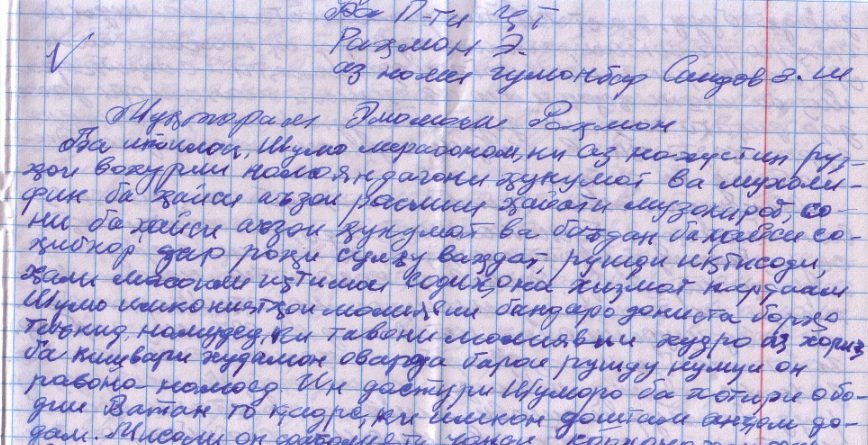 Ба П-ти ҶТ
Раҳмон Э.
аз номи гумонбар Саидов З. Ш
Муҳтарам Эмомалӣ Раҳмон
Ба иттилои Шумо мерасонам, ки аз нахустин рӯз-
ҳои вохурии намояндагони ҳукумат ва мухоли-
фин ба ҳайси аъзои расмии ҳайати музокирот, со-
ни ба ҳайси аъзои ҳукумат ва баъдан ба ҳайси со-
ҳибкор дар роҳи сулҳу ваҳдат, рушди иқтисоди,
ҳали масоили иҷтимои содиқона хизмат кардаам
Шумо имкониятҳои молиявии бандаро дониста борҳо
таъкид намудед, ки тавони молиявии худро аз хориҷ
ба кишвари худамон оварда барои рушду нумуи он
равона намоед Ин дастури Шуморо ба хотири обо-
дии Ватан то қадре, ки имкон доштам анҷом до-
дам. Мисоли он